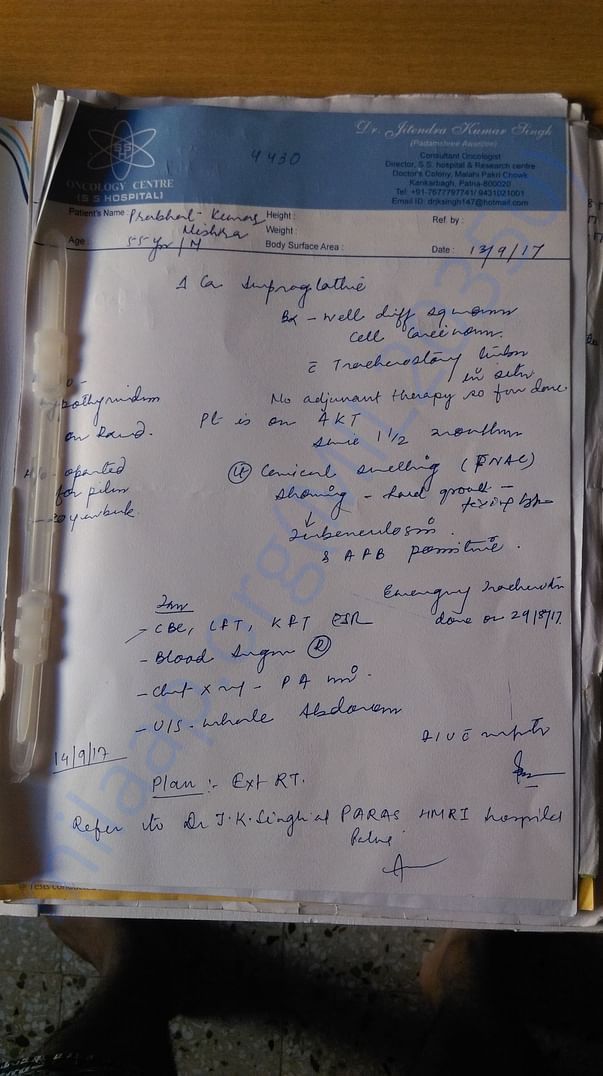 SSH
ONCOLOGY CENTRE
(S S HOSPITAL)
4430
Dr. Jitendra Kumar Singh
(Padamshree Awardee)
Consultant Oncologist
Director, S.S. hospital & Research centre
Doctor's Colony, Malahi Pakri Chowk
Kankarbagh, Patna-800020
Tel. +91-7677797741/ 9431021001
Email ID: drjksingh147@hotmail.com
Patient's Name Prabhat Kumar Mishra
Height :
Ref. by :
Weight :
Age : 55 yr / M
Body Surface Area :
Date : 13/9/17
Ca Supraglottic
Bx - well diff squamous
cell carcinoma.
Tracheostomy tube
in situ
No adjuvant therapy so far done.
Pt is on AKT
since 1 1/2 months
on Road.
operated
for piles
20 yr back.
Cervical swelling (FNAC)
showing - hard growth -
↓
Tuberculosis.
& AFB positive.
Emergency Tracheostomy
done on 29/8/17.
Inv
- CBC, LFT, KFT ESR
- Blood Sugar (R)
- Chest X ray - PA
- U/S - whole Abdomen
14/9/17
Plan :- Ext RT.
Refer to Dr J.K. Singh at PARAS HMRI hospital
Patna
@ Tests conduct
milaap.org